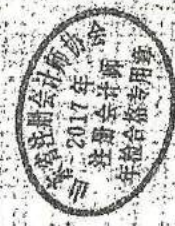 省注册会计师协会
2017年
注册会计师
年检合格专用章